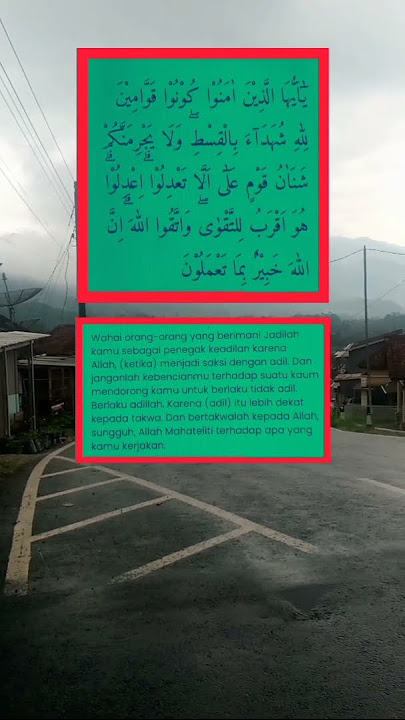 يٰٓاَيُّهَا الَّذِيْنَ اٰمَنُوْا كُوْنُوْا قَوَّامِيْنَ
لِلّٰهِ شُهَدَاۤءَ بِالْقِسْطِۖ وَلَا يَجْرِمَنَّكُمْ
شَنَاٰنُ قَوْمٍ عَلٰٓى اَلَّا تَعْدِلُوْاۗ اِعْدِلُوْاۗ
هُوَ اَقْرَبُ لِلتَّقْوٰىۖ وَاتَّقُوا اللّٰهَ ۗاِنَّ
اللّٰهَ خَبِيْرٌۢ بِمَا تَعْمَلُوْنَ
Wahai orang-orang yang beriman! Jadilah
kamu sebagai penegak keadilan karena
Allah, (ketika) menjadi saksi dengan adil. Dan
janganlah kebencianmu terhadap suatu kaum
mendorong kamu untuk berlaku tidak adil.
Berlaku adillah. Karena (adil) itu lebih dekat
kepada takwa. Dan bertakwalah kepada Allah,
sungguh, Allah Mahateliti terhadap apa yang
kamu kerjakan.